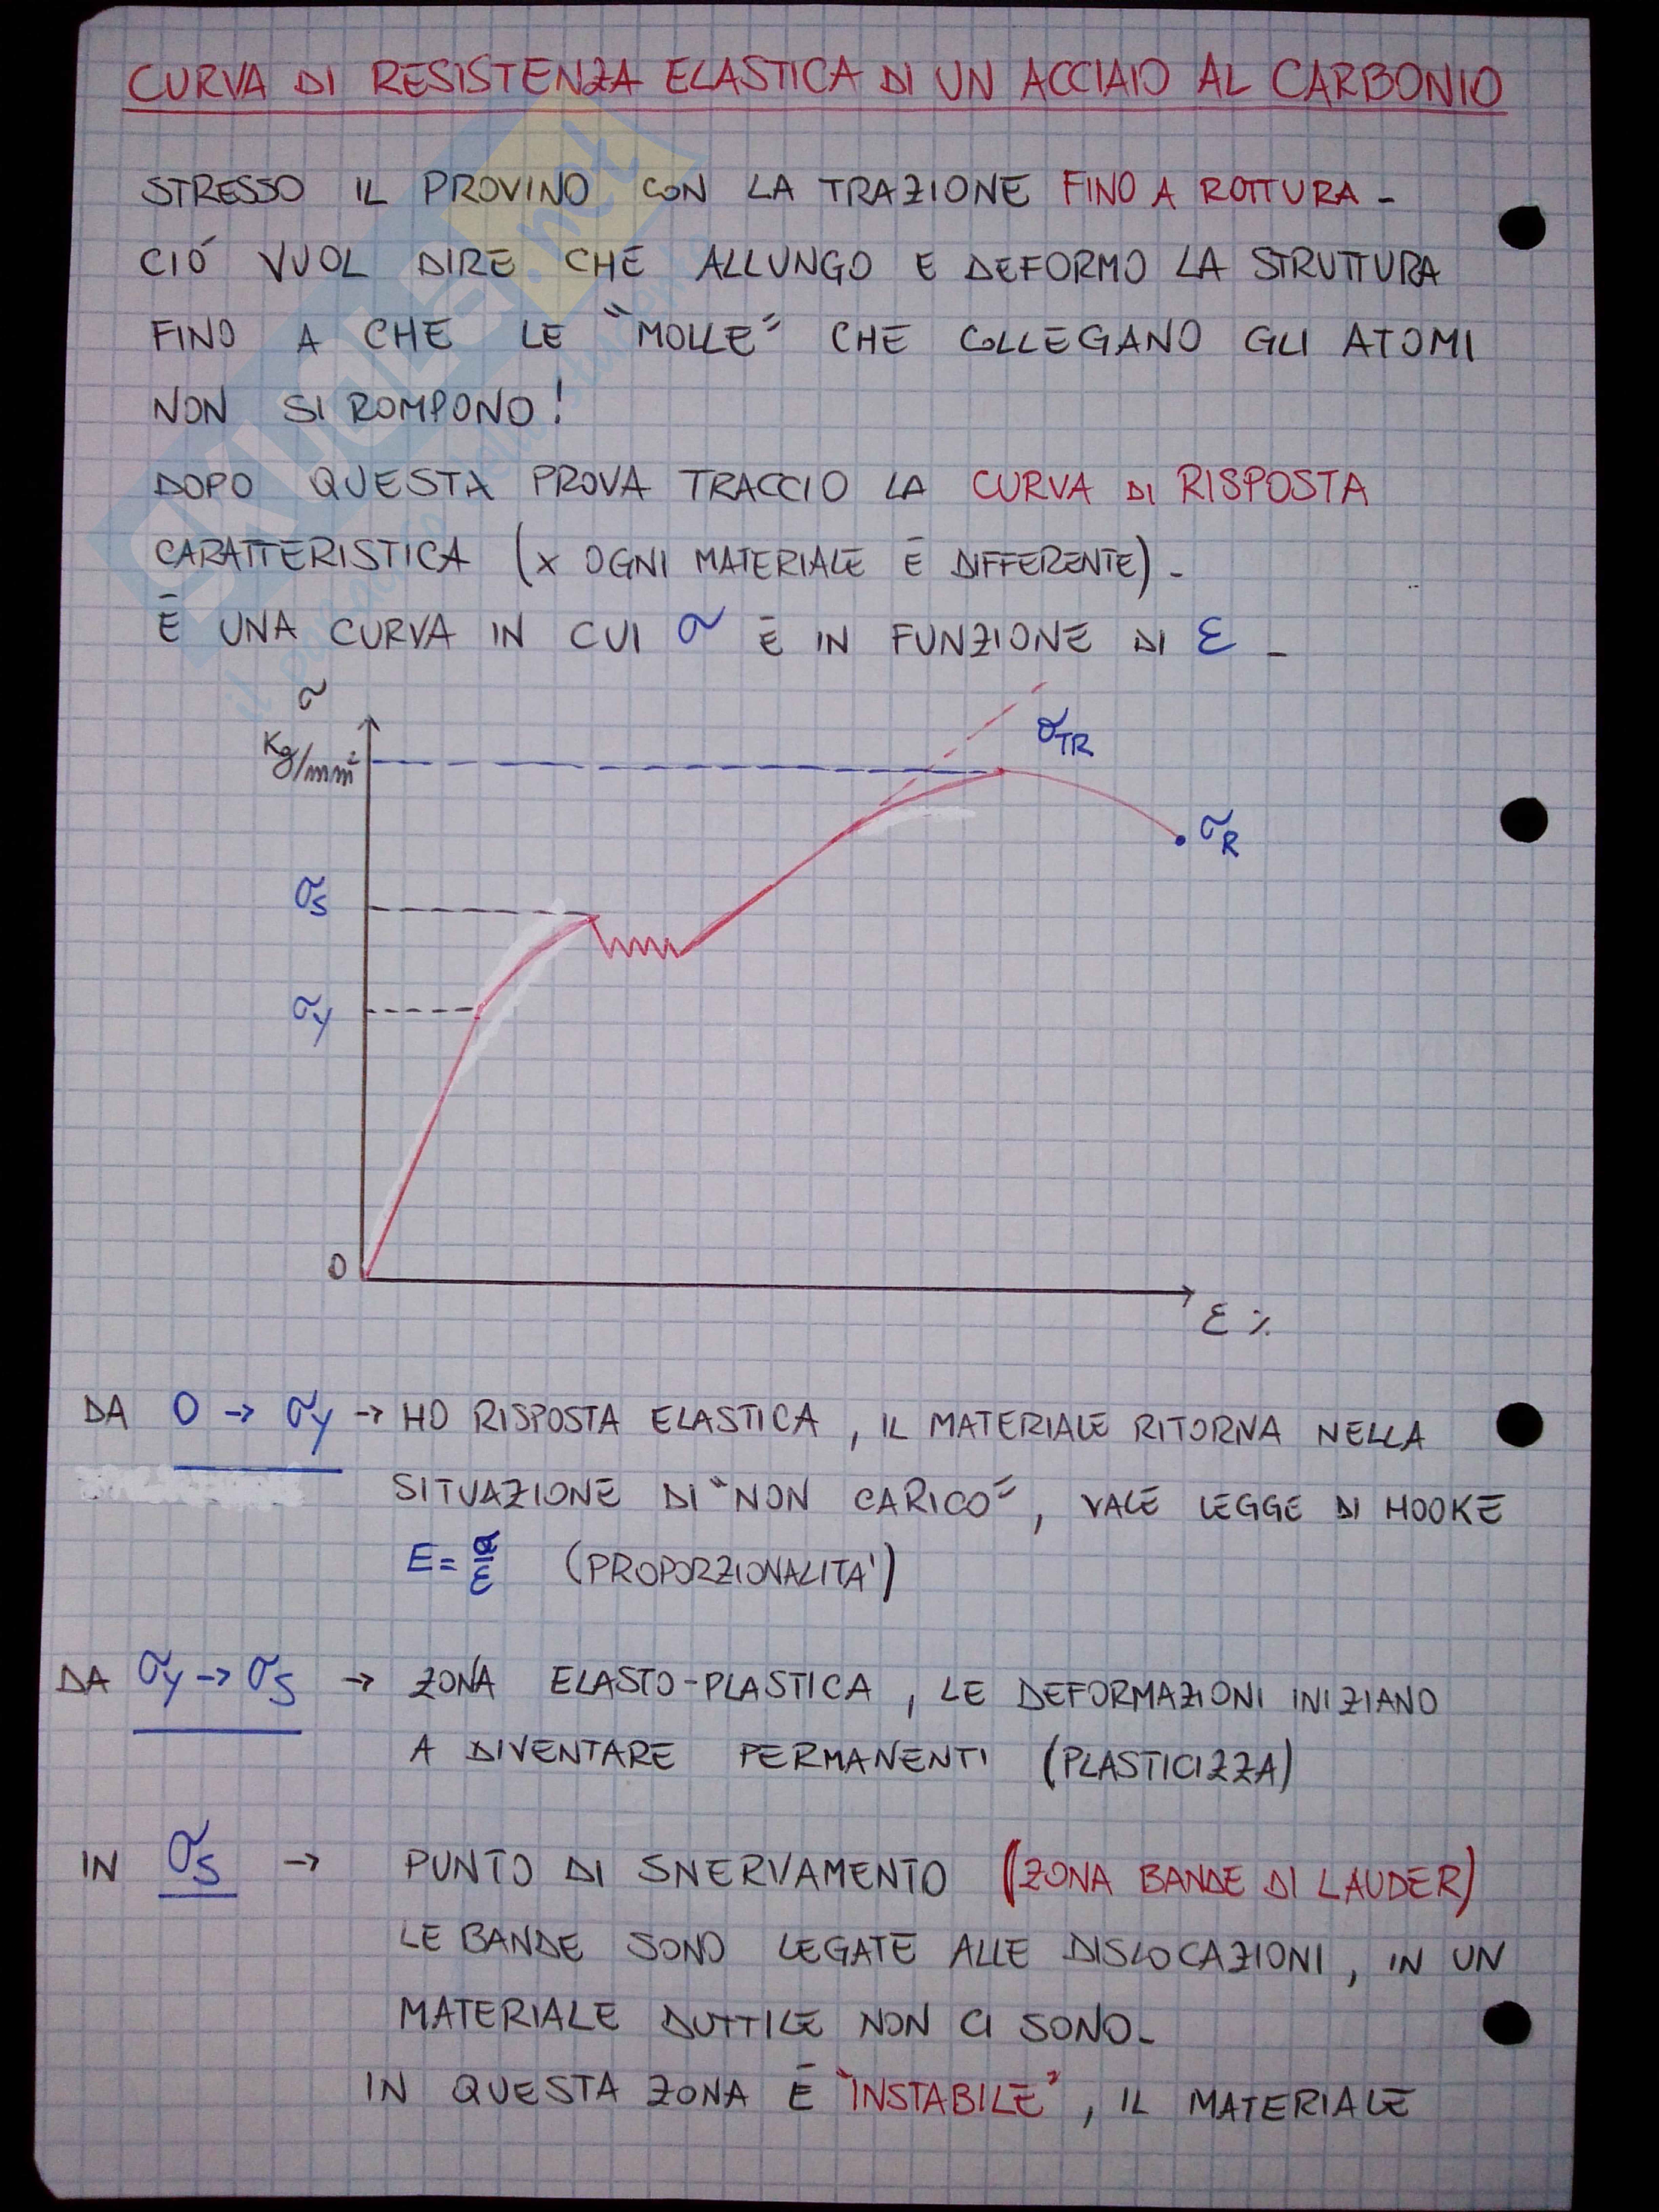 CURVA DI RESISTENZA ELASTICA DI UN ACCIAIO AL CARBONIO
STRESSO IL PROVINO CON LA TRAZIONE FINO A ROTTURA -
CIÓ VUOL DIRE CHE ALLUNGO E DEFORMO LA STRUTTURA
FINO A CHE LE "MOLLE" CHE COLLEGANO GLI ATOMI
NON SI ROMPONO!
DOPO QUESTA PROVA TRACCIO LA CURVA DI RISPOSTA
CARATTERISTICA (x OGNI MATERIALE É DIFFERENTE) -
É UNA CURVA IN CUI σ É IN FUNZIONE DI ε -
σ
Kg/mm²
σTR
σR
σS
σy
0
ε %
DA 0 → σy → HO RISPOSTA ELASTICA, IL MATERIALE RITORNA NELLA
SITUAZIONE DI "NON CARICO", VALE LEGGE DI HOOKE
E = σ/ε (PROPORZIONALITA')
DA σy → σS → ZONA ELASTO-PLASTICA, LE DEFORMAZIONI INIZIANO
A DIVENTARE PERMANENTI (PLASTICIZZA)
IN σS → PUNTO DI SNERVAMENTO (ZONA BANDE DI LAUDER)
LE BANDE SONO LEGATE ALLE DISLOCAZIONI, IN UN
MATERIALE DUTTILE NON CI SONO -
IN QUESTA ZONA É "INSTABILE", IL MATERIALE
SKUOLA.net